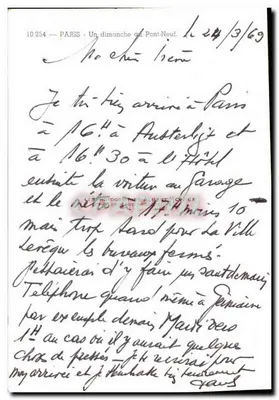 10 254 — PARIS - Un dimanche au Pont-Neuf.
le 24/3/69
Ma chère
Je suis bien arrivé à Paris
à 16H à Austerlitz et
à 16H30 à l'Hôtel
ensuite la voiture au Garage
et le métro à 17H moins 10
mais trop tard pour la Ville
Levêque les bureaux fermés.
d'y faire un saut demain
Téléphone quand même à Germaine
par exemple demain Mardi vers
1H au cas où il y aurait quelque
chose de pressé — je te pour
mon arrivée et je